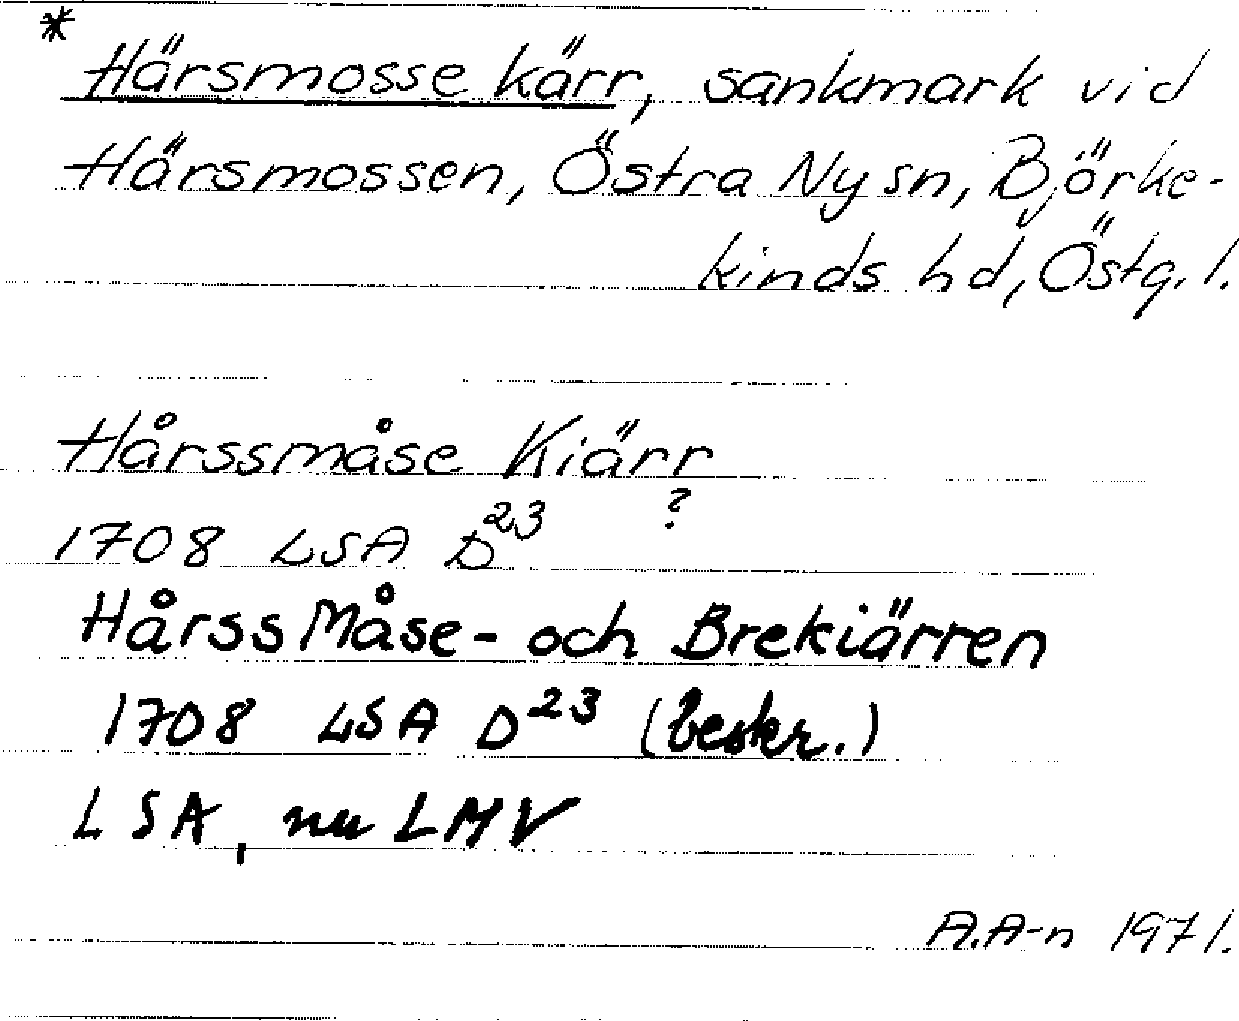 *
Härsmosse kärr, sankmark vid
Härsmossen, Östra Ny sn, Björke-
kinds hd, Östg. l.
Hårssmåse Kiärr
?
1708 LSA D23
Hårss Måse- och Brekiärren
1708 LSA D23 (beskr.)
LSA, nu LMV
A.A-n 1971.